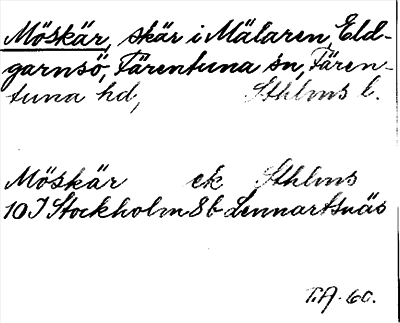 Möskär, skär i Mälaren, Eld-
garnsö, Färentuna sn, Fären-
tuna hd, Sthlms l.
Möskär ek Sthlms
10I Stockholm 8b Lennartsnäs
T.A. 60.